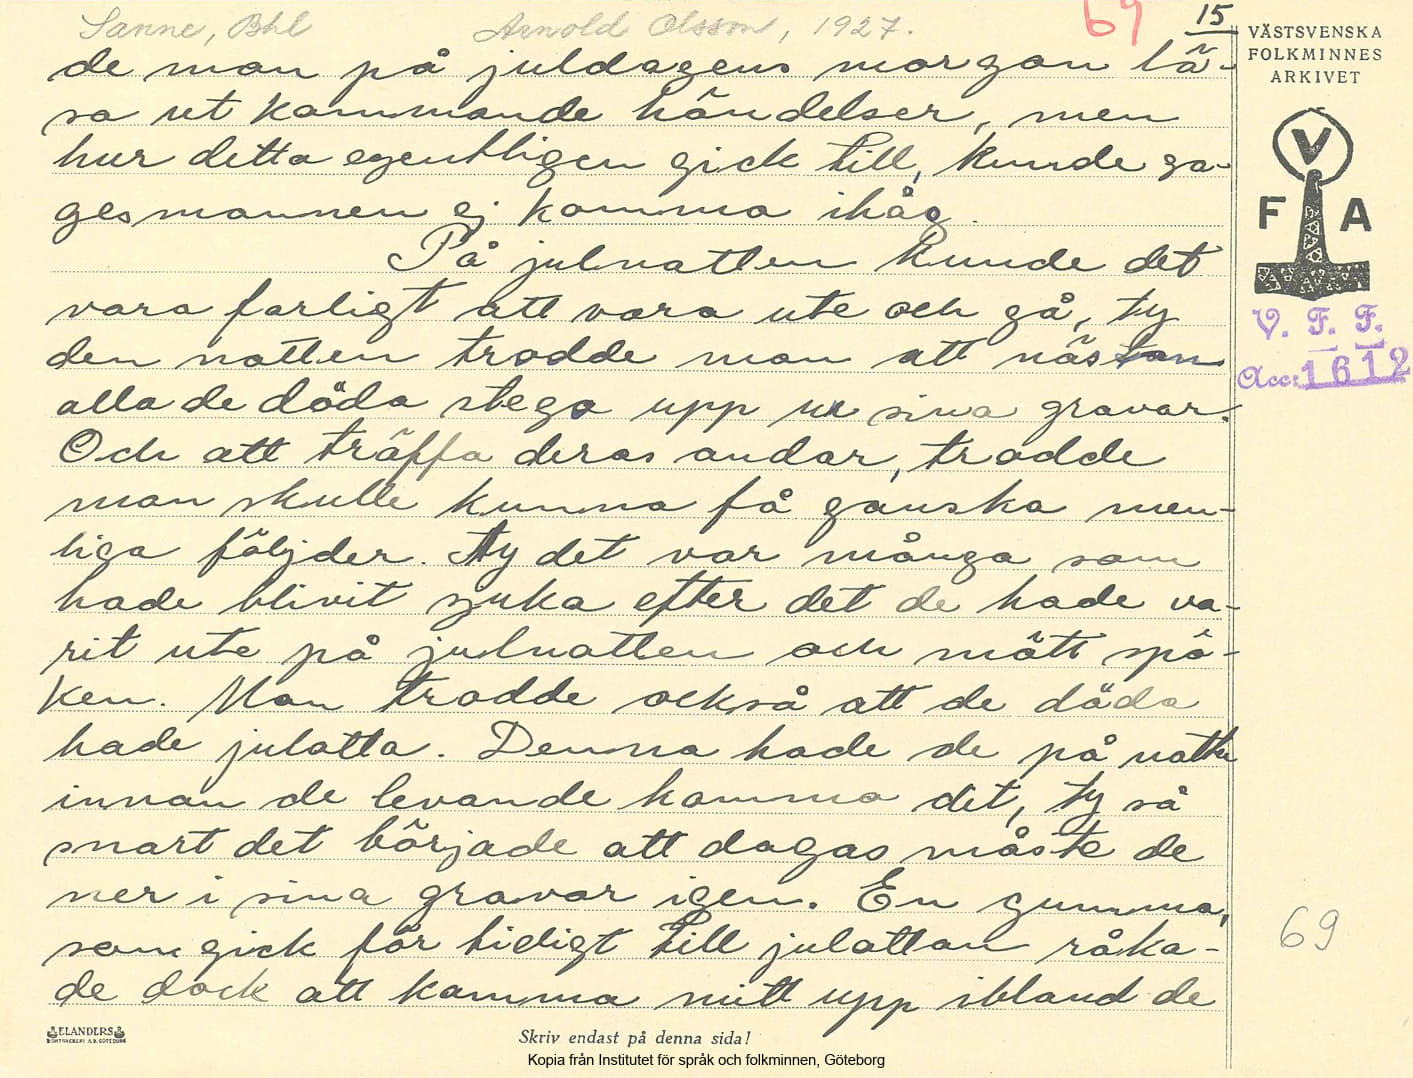 Sanne, Bhl Arnold Olsson, 1927. 69 15
VÄSTSVENSKA
FOLKMINNES
ARKIVET
V
F A
V. F. F.
Acc: 1612
de man på juldagens morgon lä-
sa ut kommande händelser, men
hur detta egentligen gick till, kunde sa-
gesmannen ej komma ihåg.
På julnatten kunde det
vara farligt att vara ute och gå, ty
den natten trodde man att nästan
alla de döda stego upp ur sina gravar.
Och att träffa deras andar, trodde
man skulle kunna få ganska men-
liga följder. Ty det var många som
hade blivit sjuka efter det de hade va-
rit ute på julnatten och mött spö-
ken. Man trodde också att de döda
hade julotta. Denna hade de på natten
innan de levande komma dit, ty så
snart det började att dagas måste de
ner i sina gravar igen. En gumma,
som gick för tidigt till julottan råka-
de dock att komma mitt upp ibland de
69
ELANDERS
BOKTRYCKERI A.B. GÖTEBORG
Skriv endast på denna sida!
Kopia från Institutet för språk och folkminnen, Göteborg